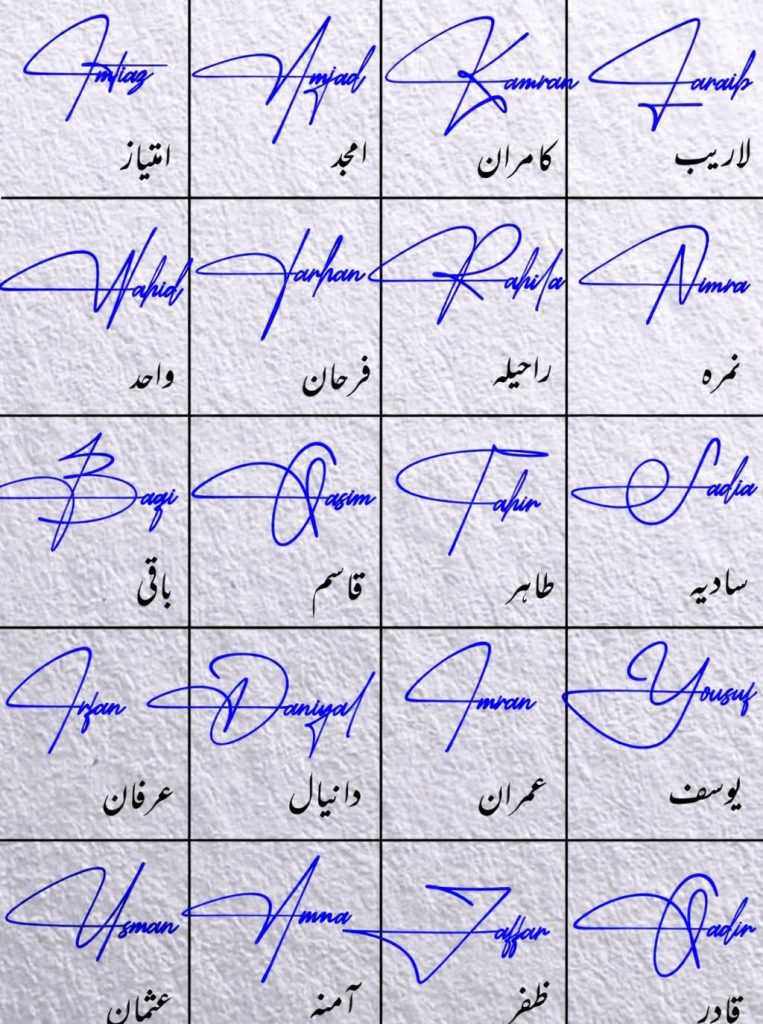 Imtiaz
امتیاز
Amjad
امجد
Kamran
کامران
Laraib
لاریب
Wahid
واحد
Farhan
فرحان
Rahila
راحیلہ
Nimra
نمرہ
Baqi
باقی
Qasim
قاسم
Tahir
طاہر
Sadia
سادیہ
Irfan
عرفان
Daniyal
دانیال
Imran
عمران
Yousuf
یوسف
Usman
عثمان
Amna
آمنہ
Zaffar
ظفر
Qadir
قادر